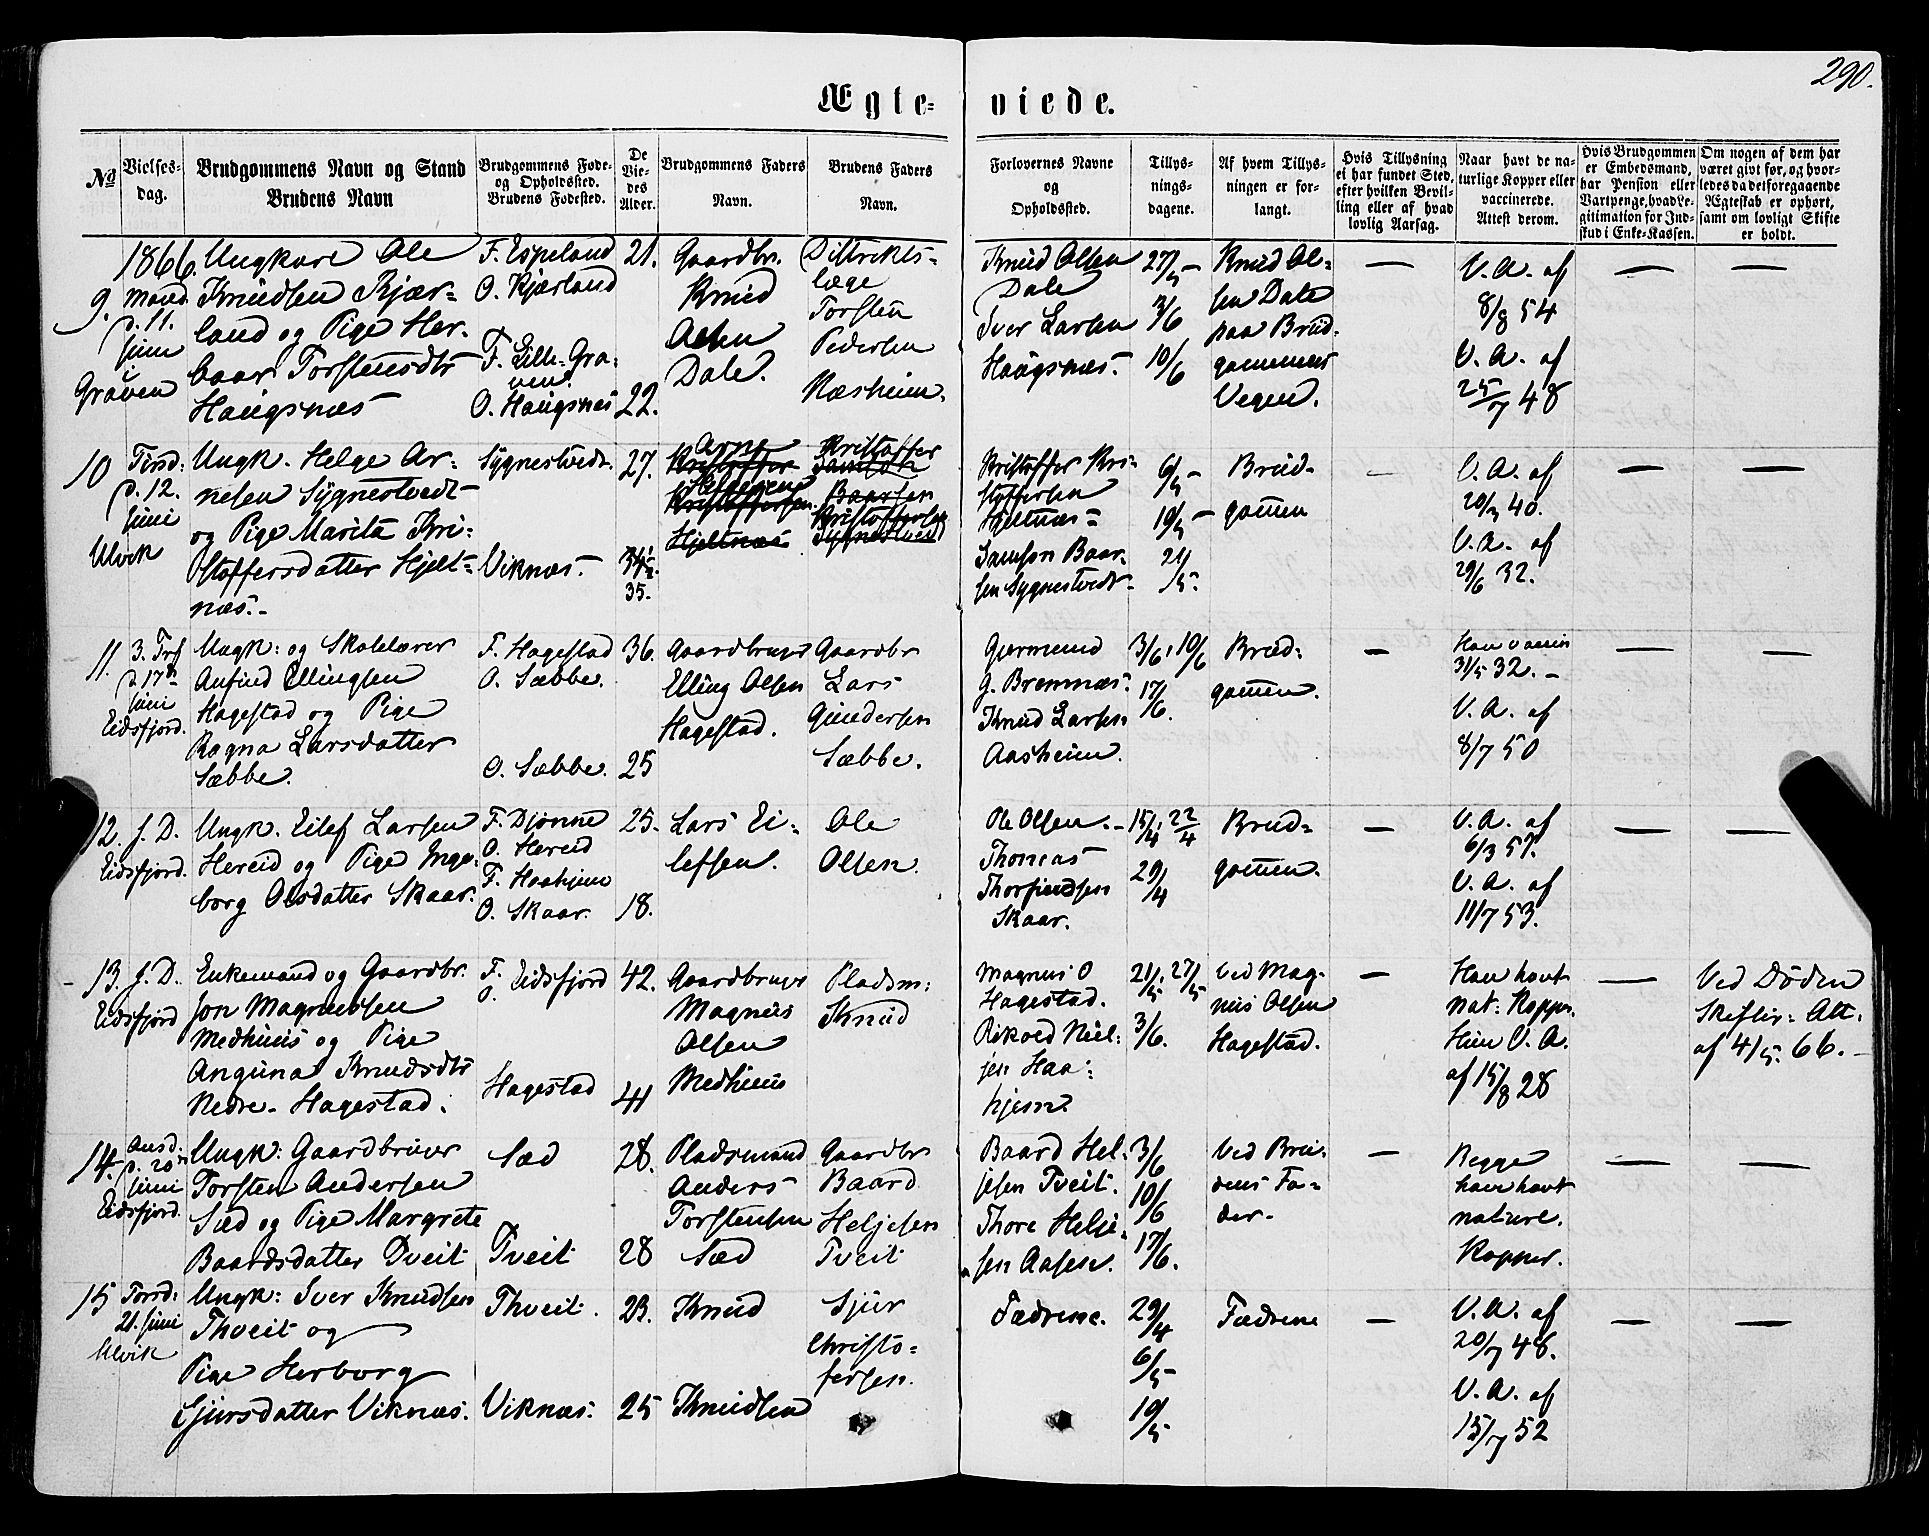 290.
Ægte- viede.
No
Vielses-
dag.
Brudgommens Navn og Stand
Brudens Navn
Brudgommens Føde-
og Opholdssted.
Brudens Fødested.
De
Vie-
des
Alder.
Brudgommens Faders
Navn.
Brudens Faders
Navn.
Forlovernes Navne
og
Opholdssted.
Tillys-
nings-
dagene.
Af hvem Tillys-
ningen er for-
langt.
Hvis Tillysning
ei har fundet Sted,
efter hvilken Bevil-
ling eller af hvad
lovlig Aarsag.
Naar havt de na-
turlige Kopper eller
vaccinerede.
Attest derom.
Hvis Brudgommen
er Embedsmand,
har Pension eller
Vartpenge, hvad Le-
gitimation for Ind-
skud i Enke-Kassen.
Om nogen af dem har
været givt før, og hvor-
ledes da det foregaaende
Ægteskab er ophørt,
samt om lovligt Skifte
er holdt.
1866.
9.
Mand.
d. 11.
Juni
i
Graven
Ungkarl Ole
Knudsen Kjær-
land og Pige Her-
baar Torstensdtr
Haugsnæs
F. Espeland
O. Kjærland
F. Lille-Gra-
ven.
O. Haugsnæs
21.
22.
Gaardbr.
Knud
Olsen
Dale.
Distrikts-
læge
Torsten
Pedersen
Næsheim.
Knud Olsen
Dale
Iver Larsen
Haugsnæs.
27/5 -
3/6
10/6
Knud Ol-
sen Dale
paa Brud-
gommens
Vegne.
—
V. A. af
8/8 54
V. A. af
25/7 48
—
—
10
Tirsd.
d. 12.
Juni
Ulvik
Ungk. Helge Ar-
nesen Sygnestvedt
og Pige Marita Kri-
stoffersdatter Hjelt-
næs.-
Sygnestvedt.
Viknæs.
27.
34½.
35.
Arne
Kristoffer
Helgesen
Kristoffersen
Hjeltnæs
Kristoffer
Samson
Baarsen
Kristoffersen
Sygnestvedt
Kristoffer Kri-
stoffersen
Hjeltnæs
Samson Baar-
sen Sygnestvedt
6/5 -
10/5 -
21
/5.
Brud-
gommen
-
V. A. af
20/7 40.
V. A. af
29/6 32.
—
—
11.
3. Tref
d. 17de
Juni
Eidsfjord.
Ungk: og Skolelærer
Anfind Ellingsen
Hagestad og Pige
Ragna Larsdatter
Sæbbe.
F. Hagestad
O. Sæbbe.
O. Sæbbe.
36.
25
Gaardbruger
Elling Olsen
Hagestad.
Gaardbr
Lars
Gundersen
Sæbbe.
Gjermund
G. Bremnæs.
Knud Larsen
Aasheim.
3/6, 10/6
17/6.
Brud-
gommen.
—
Han vaccin
31/5 32. -
V. A. af
8/7 50
—
—
12.
s. D.
Eidsfjord.
Ungk. Eilef Larsen
Hereid og Pige Inge-
borg Olsdatter Skaar.
F. Djønne
O. Hereid
F. Haahjem
O. Skaar.
25.
18.
Lars Ei-
lefsen.
Ole
Olsen.
Ole Olsen. -
Thomas
Thorfindsen
Skaar.
15/4, 22/4
29/4
Brud-
gommen.
—
V. A. af
6/3 57.
V. A. af
11/7 53.
—
—
13.
s. D.
Eidsfjord
Enkemand og Gaardbr.
Jon Magnussen
Medhuus og Pige
Anguna Knudsdtr
Nedre-Hagestad.
F.
O. Eidsfjord
Hagestad
42.
41
Gaardbruger
Magnus
Olsen
Medhuus
Pladsm:
Knud
Magnus O
Hagestad.
Rikold Niel-
sen Haa-
hjem.
21/5, 27/5
3/6.
Ved Mag-
nus Olsen
Hagestad.
—
Han havt
nat: Kopper.
Hun V. A.
af 15/8 28
—
Ved Døden
Skiftev. Att.
af 4/5. 66. -
14.
Onsd.
d. 20
Juni
Eidsfjord.
Ungk: Gaardbruger
Torsten Andersen
Sæd og Pige Margrete
Baardsdatter Tveit
Sæd
Tveit
28.
28
Pladsmand
Anders
Torstensen
Sæd
Gaardbr
Baard
Heljesen
Tveit
Baard Hel-
jesen Tveit.
Thore Helje-
sen Aasen.
3/6
10/6
17/6.
Ved Bru-
dens Fa-
der.
—
Begge
have havt
naturl.
Kopper.
—
—
15
Torsd.
21. Juni
Ulvik
Ungk: Iver Knudsen
Thveit og
Pige Herborg
Sjursdatter Viknæs.
Thveit.
Viknæs.
23.
25
Knud
Knudsen
Sjur
Christo-
fersen.
Fædrene.
29/4
6/5
10/5
Fædrene
—
V. A. af
20/7 48.
V. A. af
15/7 52
—
—